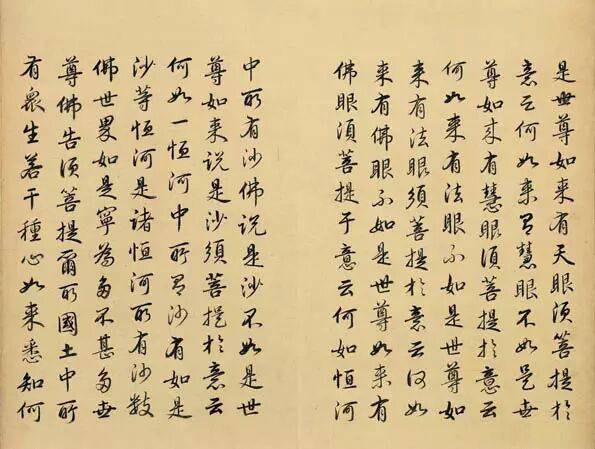 是世尊如来有天眼須菩提於
意云何如来有慧眼不如是世
尊如来有慧眼須菩提於意云
何如来有法眼不如是世尊如
来有法眼須菩提於意云何如
来有佛眼不如是世尊如来有
佛眼須菩提于意云何如恒河
中所有沙佛說是沙不如是世
尊如来說是沙須菩提於意云
何如一恒河中所有沙有如是
沙等恒河是諸恒河所有沙数
佛世界如是寧為多不甚多世
尊佛告須菩提爾所國土中所
有衆生若干種心如来悉知何